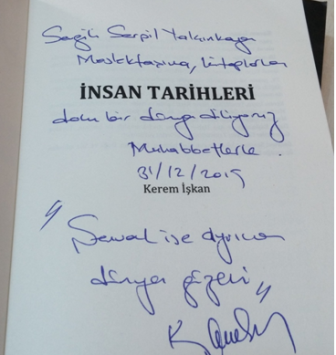 Sayın Serpil Yalçınkaya
Meslektaşıma, kitaplarla
İNSAN TARİHLERİ
dolu bir dünya diliyoruz
Muhabbetlerle.
31/12/2019
Kerem İşkan
"Sanat ise ayrıca
dünya güzeli"